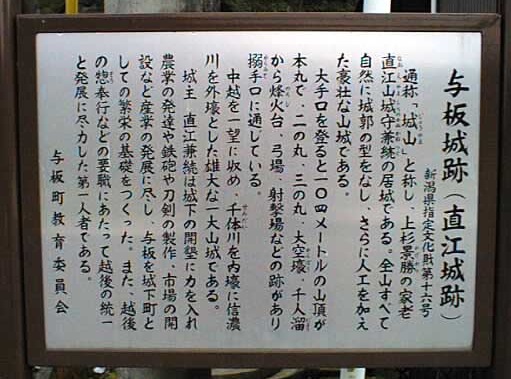 与板城跡（直江城跡）
新潟県指定文化財第十六号
通称「城山」と称し、上杉景勝の家老
直江山城守兼続の居城である。全山すべて
自然に城郭の型をなし、さらに人工を加え
た豪壮な山城である。
大手口を登ると一〇四メートルの山頂が
本丸で、二の丸、三の丸、大空壕、千人溜
から烽火台、弓場、射撃場などの跡があり
搦手口に通じている。
中越を一望に収め、千体川を内壕に信濃
川を外壕とした雄大な一大山城である。
城主、直江兼続は城下の開墾に力を入れ
農業の発達や鉄砲や刀剣の製作、市場の開
設など産業の発展に尽し、与板を城下町と
しての繁栄の基礎をつくった。また、越後
の惣奉行などの要職にあたって越後の統一
と発展に尽力した第一人者である。
与板町教育委員会